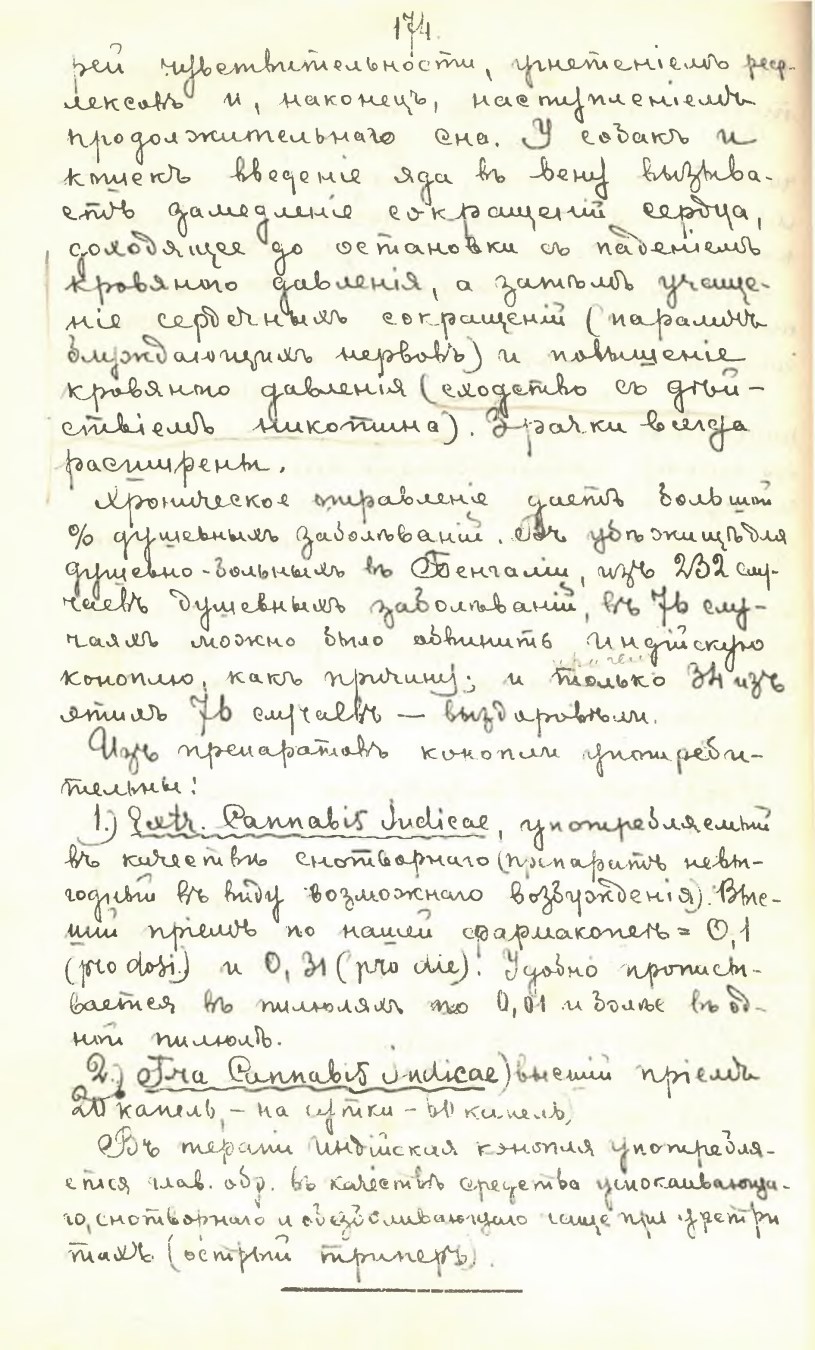 174.
рей чувствительности, угнетеніемъ реф-
лексовъ и, наконецъ, наступленіемъ
продолжительнаго сна. У собакъ и
кошекъ введеніе яда въ вену вызыва-
етъ замедленіе сокращеній сердца,
доходящее до остановки съ паденіемъ
кровяного давленія, а затѣмъ учаще-
ніе сердечныхъ сокращеній (параличъ
блуждающихъ нервовъ) и повышеніе
кровяного давленія (сходство съ дѣй-
ствіемъ никотина). Зрачки всегда
расширены.
Хроническое отравленіе даетъ большой
% душевныхъ заболѣваній. Въ убѣжищѣ для
душевно-больныхъ въ Бенгаліи, изъ 232 слу-
чаевъ душевныхъ заболѣваній, въ 76 слу-
чаяхъ можно было обвинить индійскую
коноплю, какъ причину; и только 34 изъ
этихъ 76 случаевъ — выздоровѣли.
Изъ препаратовъ конопли употреби-
тельны:
1.) Extr. Cannabis Indicae, употребляемый
въ качествѣ снотворнаго (препаратъ невы-
годный въ виду возможнаго возбужденія). Выс-
шій пріемъ по нашей фармакопеѣ = 0,1
(pro dosi.) и 0,31 (pro die). Удобно прописы-
вается въ пилюляхъ по 0,01 и болѣе въ од-
ной пилюлѣ.
2.) T-ra Cannabis indicae) высшій пріемъ
20 капель, – на сутки – 60 капель,
Въ терапіи индійская конопля употребля-
ется глав. обр. въ качествѣ средства успокаивающа-
го, снотворнаго и обезболивающаго чаще при уретри
тахъ (острый триперъ).